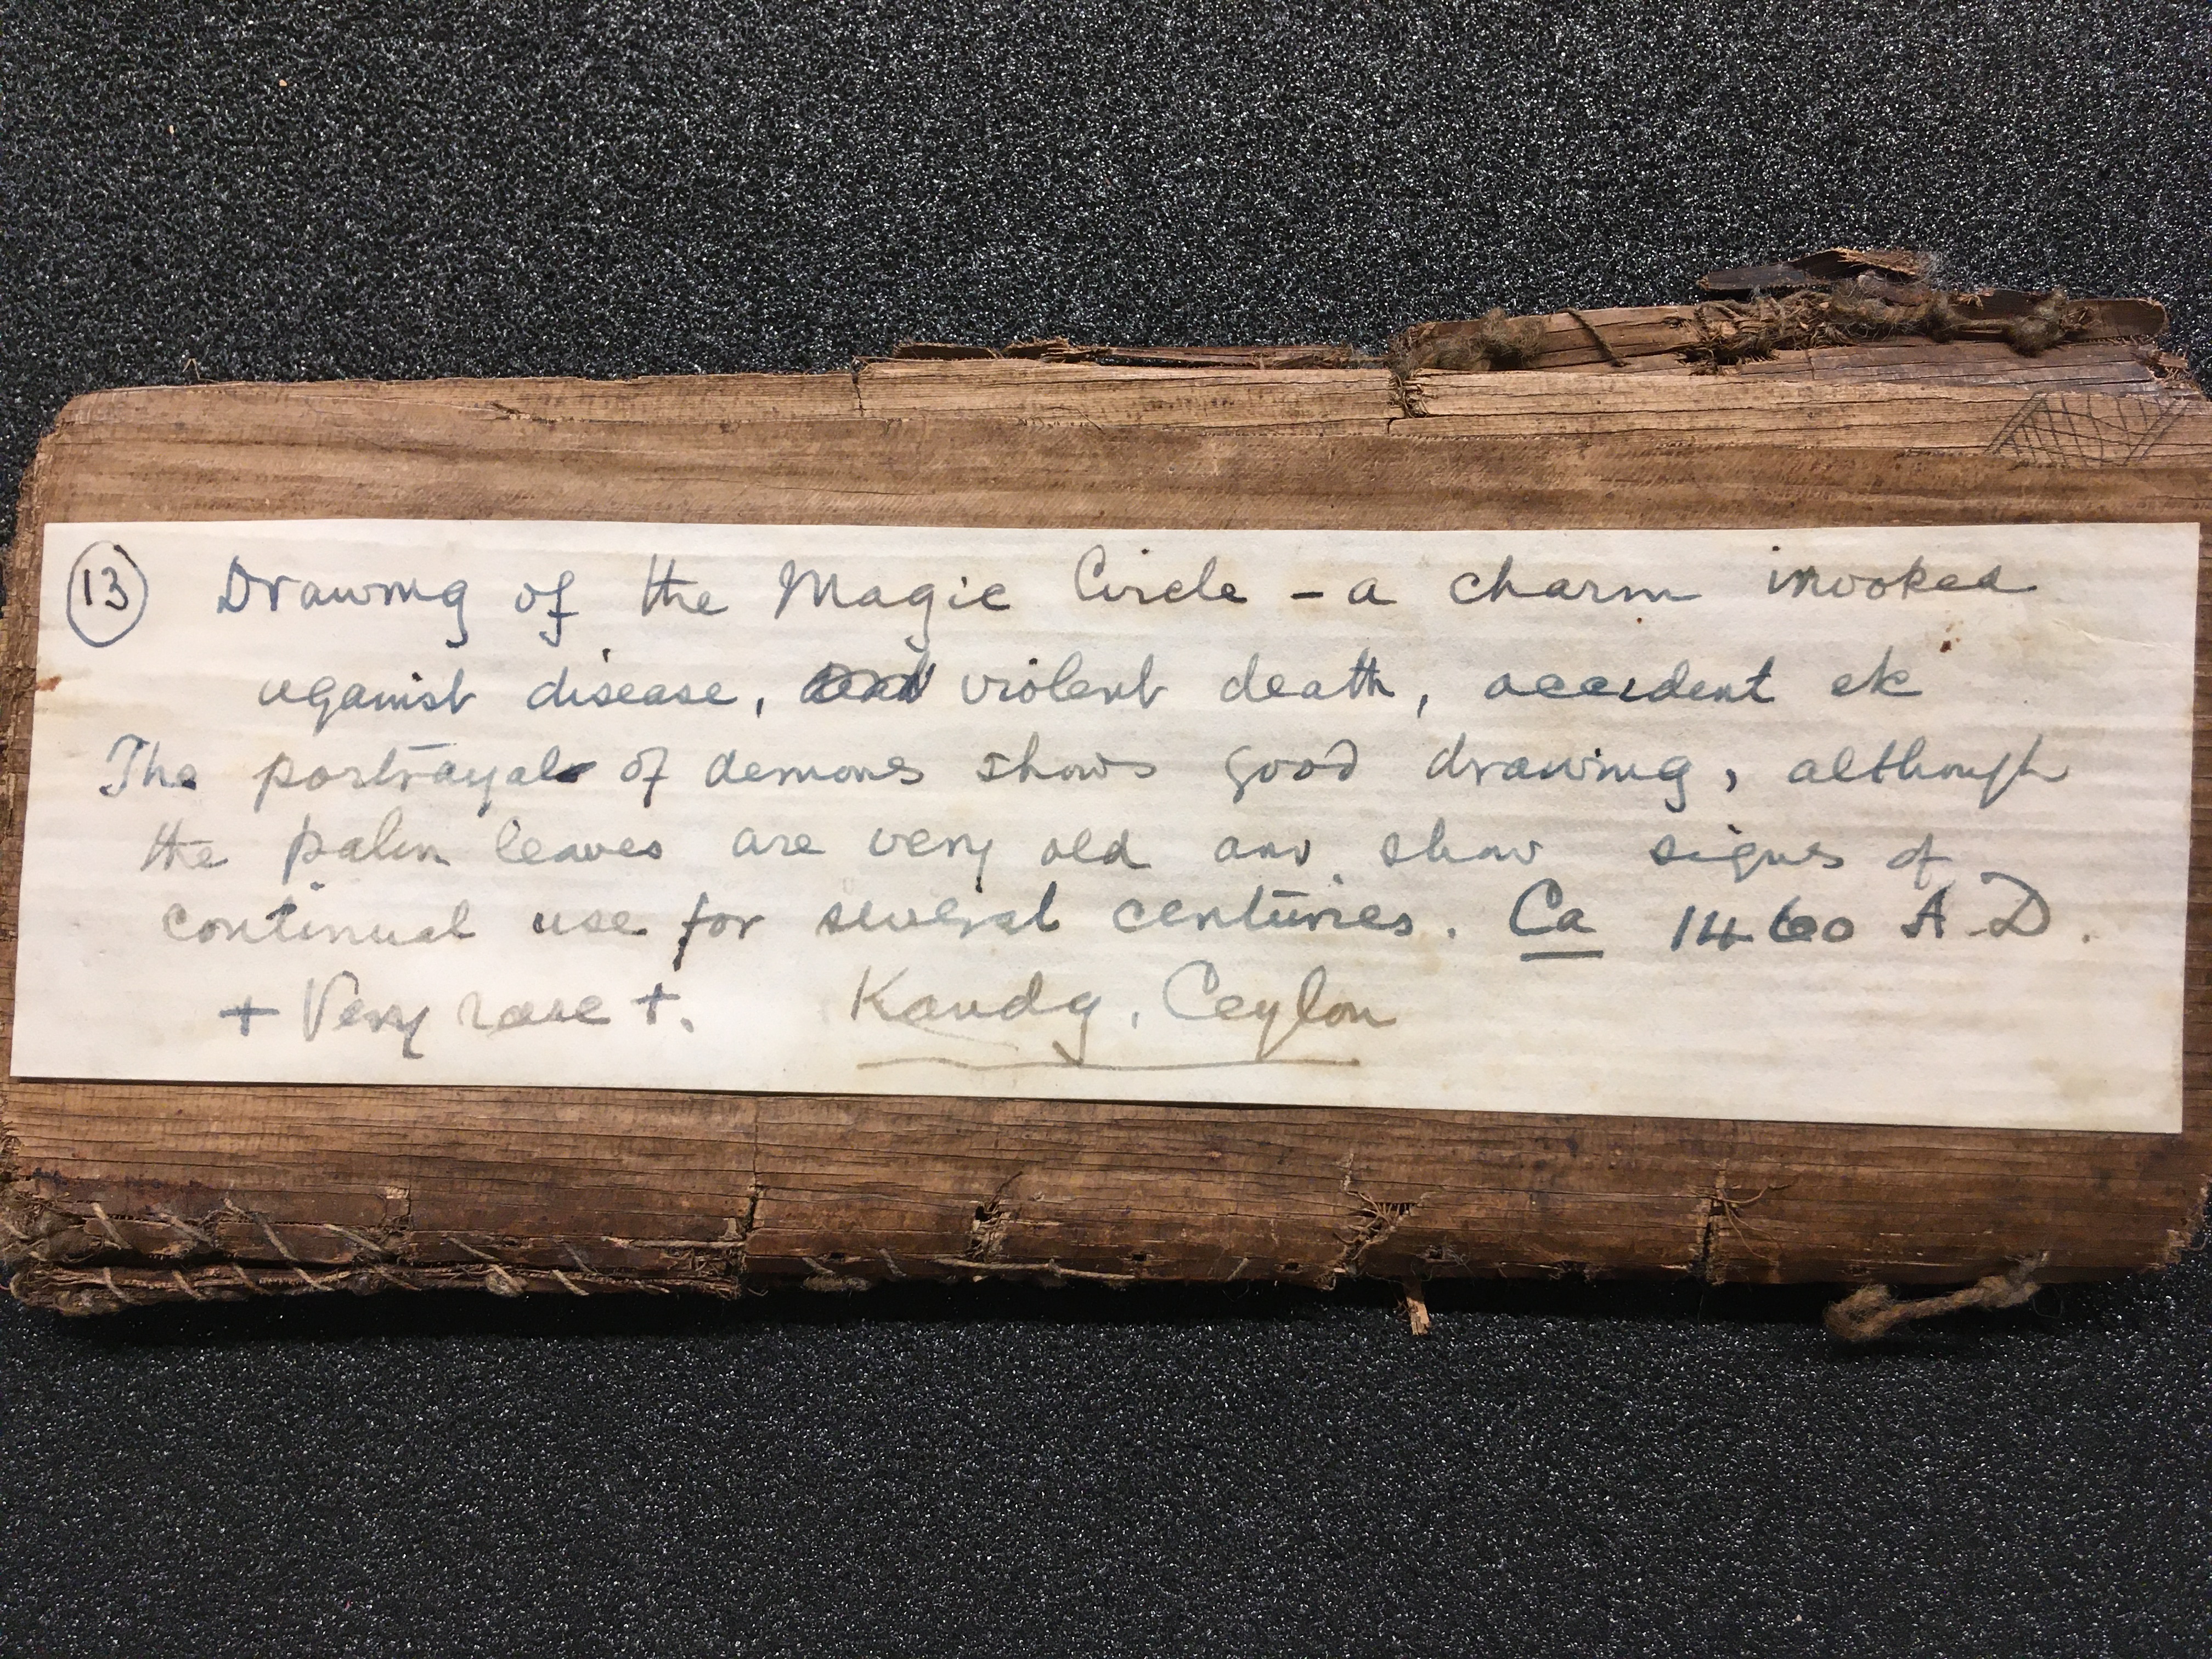 13 Drawing of the Magic Circle - a charm invoked
against disease, violent death, accident etc
The portrayal of demons shows good drawing, although
the palm leaves are very old and show signs of
continual use for several centuries. Ca 1460 A.D.
+ Very rare +. Kandy, Ceylon